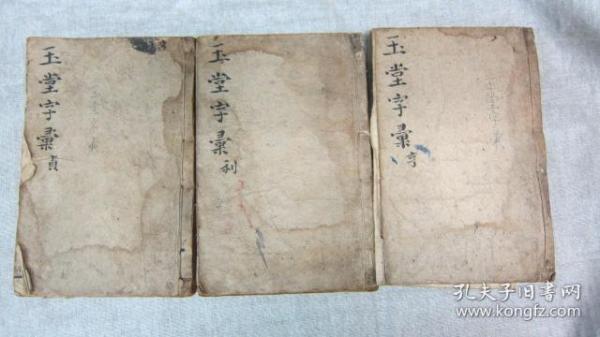 玉堂字彙亨
玉堂字彙利
玉堂字彙貞
孔夫子旧书网
www.kongfz.com